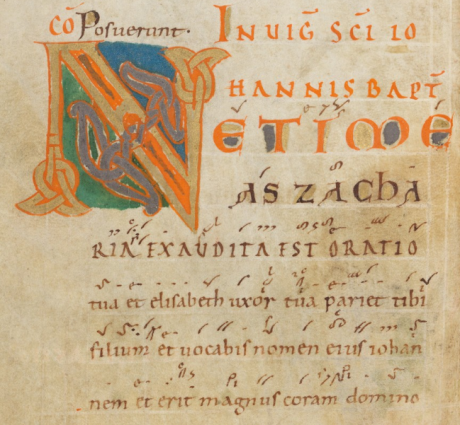 CŌ Posuerunt. IN UIG̅ SC̅I IO
HANNIS BAPT̅
NE TIME
AS ZACHA
RIA EXAUDITA EST ORATIO
tua et elisabeth uxor tua pariet tibi
filium et uocabis nomen eius iohan
nem et erit magnus coram domino